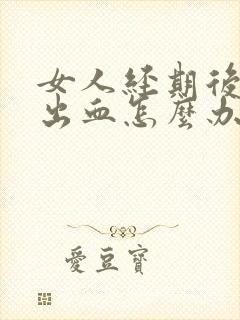 女人经期後
出血怎麼办
爱豆寶